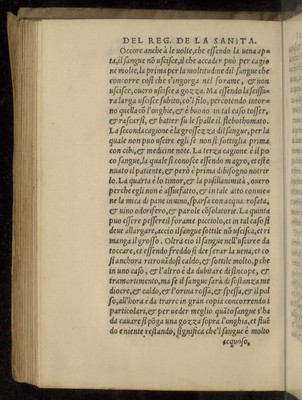 DEL REG. DE LA SANITA.
Occore anchè à le uolte, che essendo la uena aperta,
il sangue nō uscisce, il che accader può per cagione
molte, la prima per la moltitudine del sangue che
concorre così che s'ingorga nel forame, & non
uscisce, ouero uscisce a gozza. Ma essendo la scissura
larga uscisce subito, co'l filo, percotendo intorno
quella cō l'onghie, & è buono in tal caso tossere,
& rascarsi, & batter su le spalle il flebothomato.
La seconda cagione è la grossezza del sangue, per la
quale non può uscire egli se non si sottiglia prima
con cibi, & medicine note. La terza cagione è il poco
sangue, la quale si conosce essendo magro, et estenuato
il patiente, & però è prima dibisogno notrirlo.
La quarta è lo timor, & la pusillanimità, ouero
perche egli non è assuefatto, & in tale atto conuiene
la mica di pane in uino, sparsa con acqua rosata,
& uino odorifero, & parole cōsolatorie. La quinta
può essere p essere il forame picciolo, et in tal caso si
deue allargare, accio il sangue sottile nō uscisca, et rimanga
il grosso. Oltra ciò il sangue nell'uscire da
toccare, et essendo freddo si dee serar la uena, et cosi
anchora ritrouādosi caldo, & sottile molto, pche
in uno caso, & l'altro è da dubitare di sincope, &
tramortimento, ma se il sangue sarà di sostanza mediocre,
& caldo, & l'orina rossa, & spessa, & il polso,
all'hora è da trarre in gran copia concorrendo i
particolari, & per ueder meglio quāto sangue s'ha
da cauare si pōga una gozza sopra l'onghia, et fluēdo
e niente restando, significa che'l sangue è molto
acquoso,